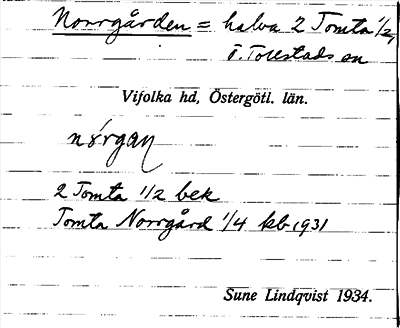 Norrgården = halva 2 Tomta 1/2,
V. Tolestads sn
Vifolka hd, Östergötl. län.
2 Tomta 1/2 bek
Tomta Norrgård 1/4 kb 1931
Sune Lindqvist 1934.